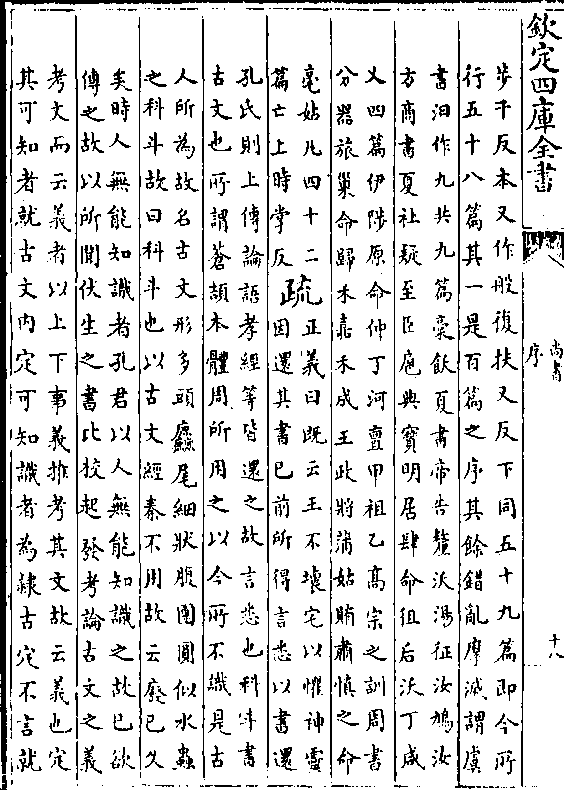 欽定四庫全書
尚書
序
十八
步干反本又作般復扶又反下同五十九篇即今所
行五十八篇其一是百篇之序其餘錯亂摩滅謂虞
書汨作九共九篇稾飫夏書帝告釐沃湯征汝鳩汝
方商書夏社疑至臣扈典寶明居肆命徂后沃丁咸
乂四篇伊陟原命仲丁河亶甲祖乙高宗之訓周書
分器旅巢命歸禾嘉禾成王政將蒲姑賄肅慎之命
亳姑凡四十二
篇亡上時掌反
疏
正義曰既云王不壞宅以懼神靈
因還其書已前所得言悉以書還
孔氏則上傳論語孝經等皆還之故言悉也科斗書
古文也所謂蒼頡本體周所用之以今所不識是古
人所為故名古文形多頭麤尾細狀腹團圓似水蟲
之科斗故曰科斗也以古文經秦不用故云廢已久
矣時人無能知識者孔君以人無能知識之故已欲
傳之故以所聞伏生之書比校起發考論古文之義
考文而云義者以上下事義推考其文故云義也定
其可知者就古文內定可知識者為隸古定不言就